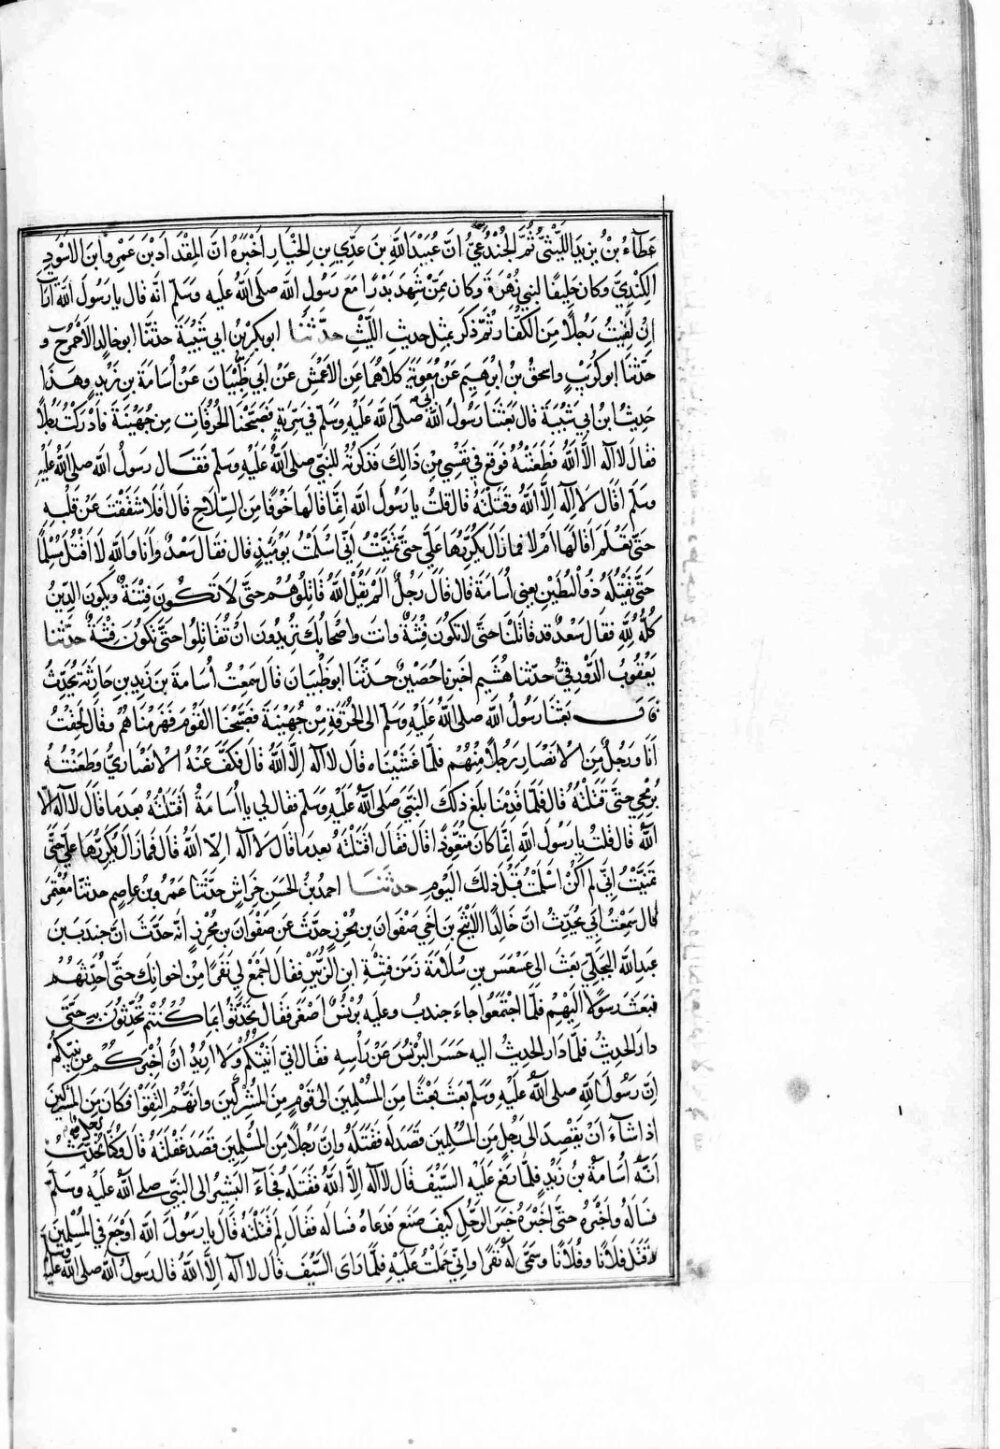 عطاء بن يزيد الليثي ثم الجندعي ان عبيد الله بن عدي بن الخيار اخبره ان المقداد بن عمرو ابن الاسود
الكندي وكان حليفا لبني زهرة وكان ممن شهد بدرا مع رسول الله صلى الله عليه وسلم انه قال يا رسول الله ارايت
ان لقيت رجلا من الكفار ثم ذكر بمثل حديث الليث حدثنا ابو بكر بن ابي شيبة حدثنا ابو خالد الاحمر ح و
حدثنا ابو كريب واسحق بن ابرهيم عن ابي معوية كلاهما عن الاعمش عن ابي ظبيان عن أسامة بن زيد وهذا
حديث ابن ابي شيبة قال بعثنا رسول الله صلى الله عليه وسلم في سرية فصبحنا الحرقات من جهينة فأدركت رجلا
فقال لا اله الا الله فطعنته فوقع في نفسي من ذالك فذكرته للنبي صلى الله عليه وسلم فقال رسول الله صلى الله عليه
وسلم اقال لا اله الا الله وقتلته قال قلت يا رسول الله انما قالها خوفا من السلاح قال أفلا شققت عن قلبه
حتى تعلم أقالها أم لا فما زال يكررها علي حتى تمنيت أني اسلمت يومئذ قال فقال سعد وأنا والله لا اقتل مسلما
حتى يقتله ذو البطين يعني أسامة قال قال رجل ألم يقل الله قاتلوهم حتى لا تكون فتنة ويكون الدين
كله لله فقال سعد قد قاتلنا حتى لا تكون فتنة وانت واصحابك تريدون ان تقاتلوا حتى تكون فتنة حدثنا
يعقوب الدورقي حدثنا هشيم اخبرنا حصين حدثنا ابو ظبيان قال سمعت أسامة بن زيد بن حارثة يحدث
قال بعثنا رسول الله صلى الله عليه وسلم الى الحرقة من جهينة فصبحنا القوم فهزمناهم وقال لحقت
أنا ورجل من الانصار رجلا منهم فلما غشيناه قال لا اله الا الله قال فكف عنه الانصاري وطعنته
برمحي حتى قتلته قال فلما قدمنا بلغ ذلك النبي صلى الله عليه وسلم فقال لي يا أسامة أقتلته بعد ما قال لا اله الا
الله قال قلت يا رسول الله انما كان متعوذا قال فقال اقتلته بعد ما قال لا اله الا الله قال فما زال يكررها علي حتى
تمنيت اني لم اكن اسلمت قبل ذلك اليوم حدثنا احمد بن الحسن خراش حدثنا عمرو بن عاصم حدثنا معتمر
قال سمعت ابي يحدث ان خالدا الاثبج بن اخي صفوان بن محرز حدث عن صفوان بن محرز انه حدث ان جندب بن
عبد الله البجلي بعث الى عسعس بن سلامة زمن فتنة ابن الزبير فقال اجمع لي نفرا من اخوانك حتى أحدثهم
فبعث رسولا اليهم فلما اجتمعوا جاء جندب وعليه برنس أصفر فقال تحدثوا بما كنتم تحدثون به حتى
دار الحديث فلما دار الحديث اليه حسر البرنس عن رأسه فقال اني أتيتكم ولا اريد أن أخبركم عن نبيكم
ان رسول الله صلى الله عليه وسلم بعث بعثا من المسلمين الى قوم من المشركين وانهم التقوا فكان من المشركين
اذا شاء أن يقصد الى رجل من المسلمين قصد له فقتله وإن رجلا من المسلمين قصد غفلته قال وكنا نحدث
أنه أسامة بن زيد فلما رفع عليه السيف قال لا اله الا الله فقتله فجاء البشير الى النبي صلى الله عليه وسلم
فساله واخبره حتى اخبره خبر الرجل كيف صنع فدعاه فساله فقال لم قتلته قال يا رسول الله أوجع في المسلمين
وقتل فلانا وفلانا وسمى له نفرا واني حملت عليه فلما راى السيف قال لا اله الا الله قال رسول الله صلى الله عليه
وسلم